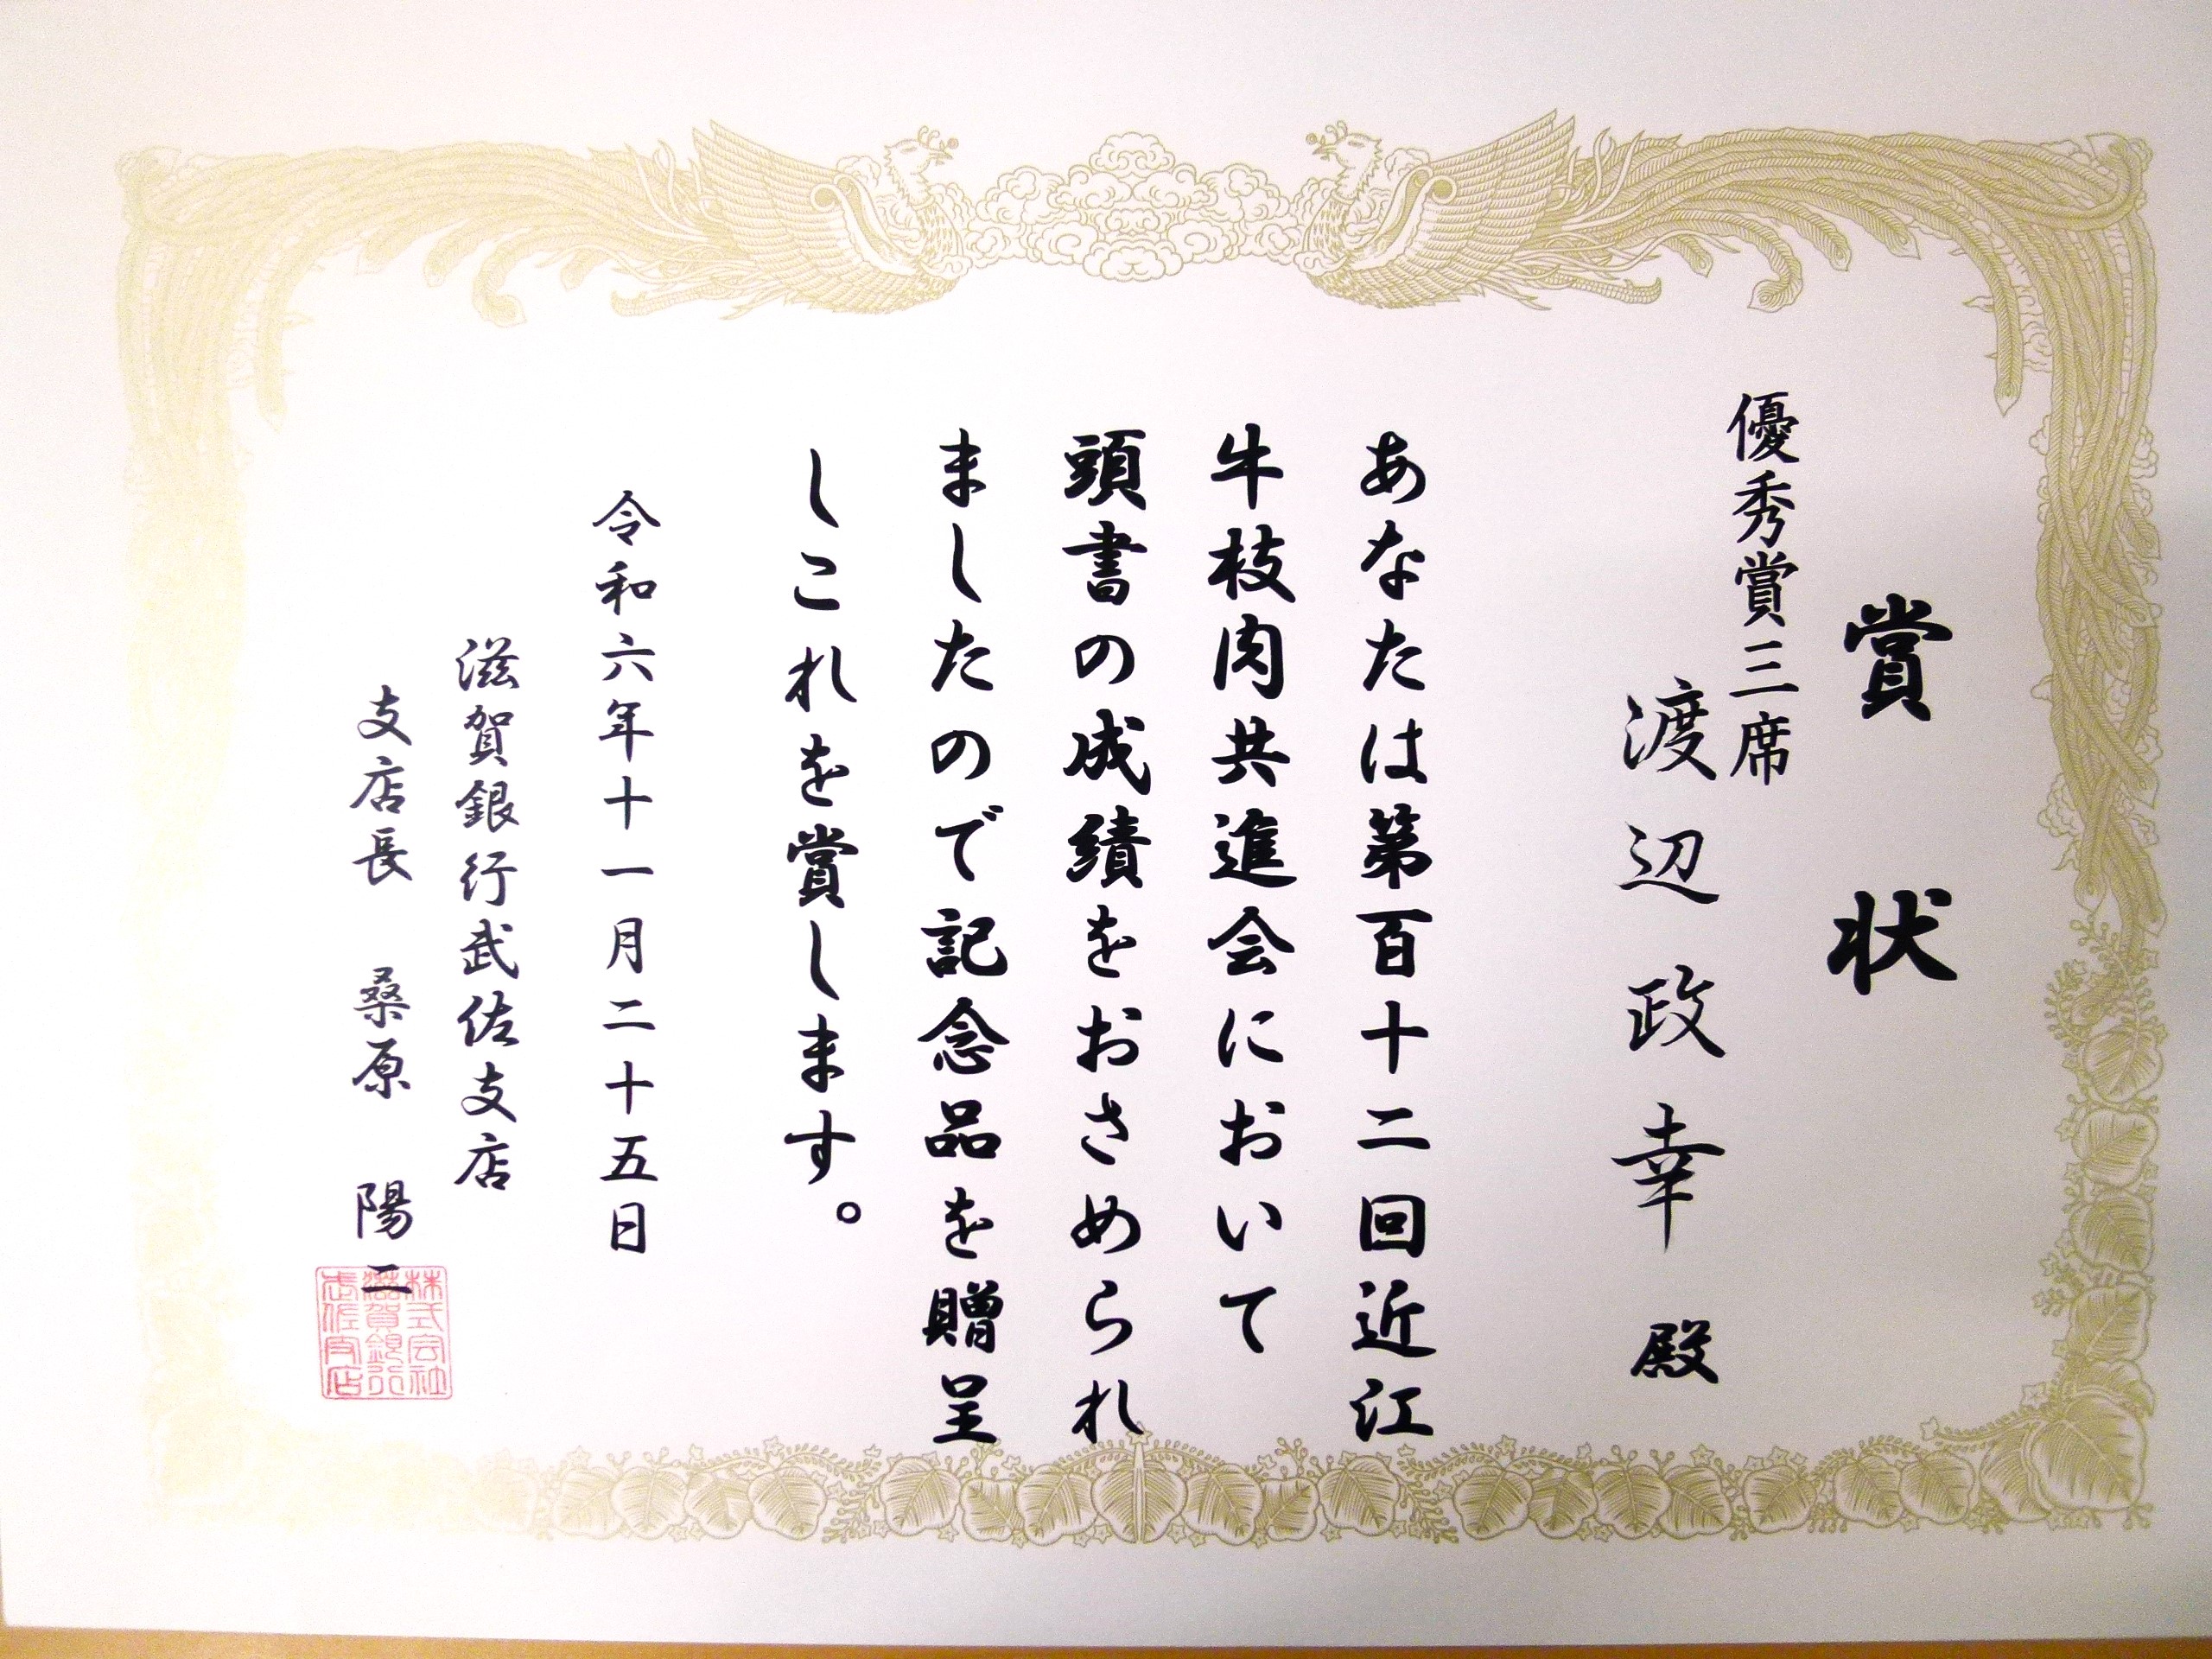 賞状
優秀賞三席
渡辺政幸 殿
あなたは第百十二回近江
牛枝肉共進会において
頭書の成績をおさめられ
ましたので記念品を贈呈
しこれを賞します。
令和六年十一月二十五日
滋賀銀行武佐支店
支店長 桑原 陽二
株式会社
滋賀銀行
武佐支店